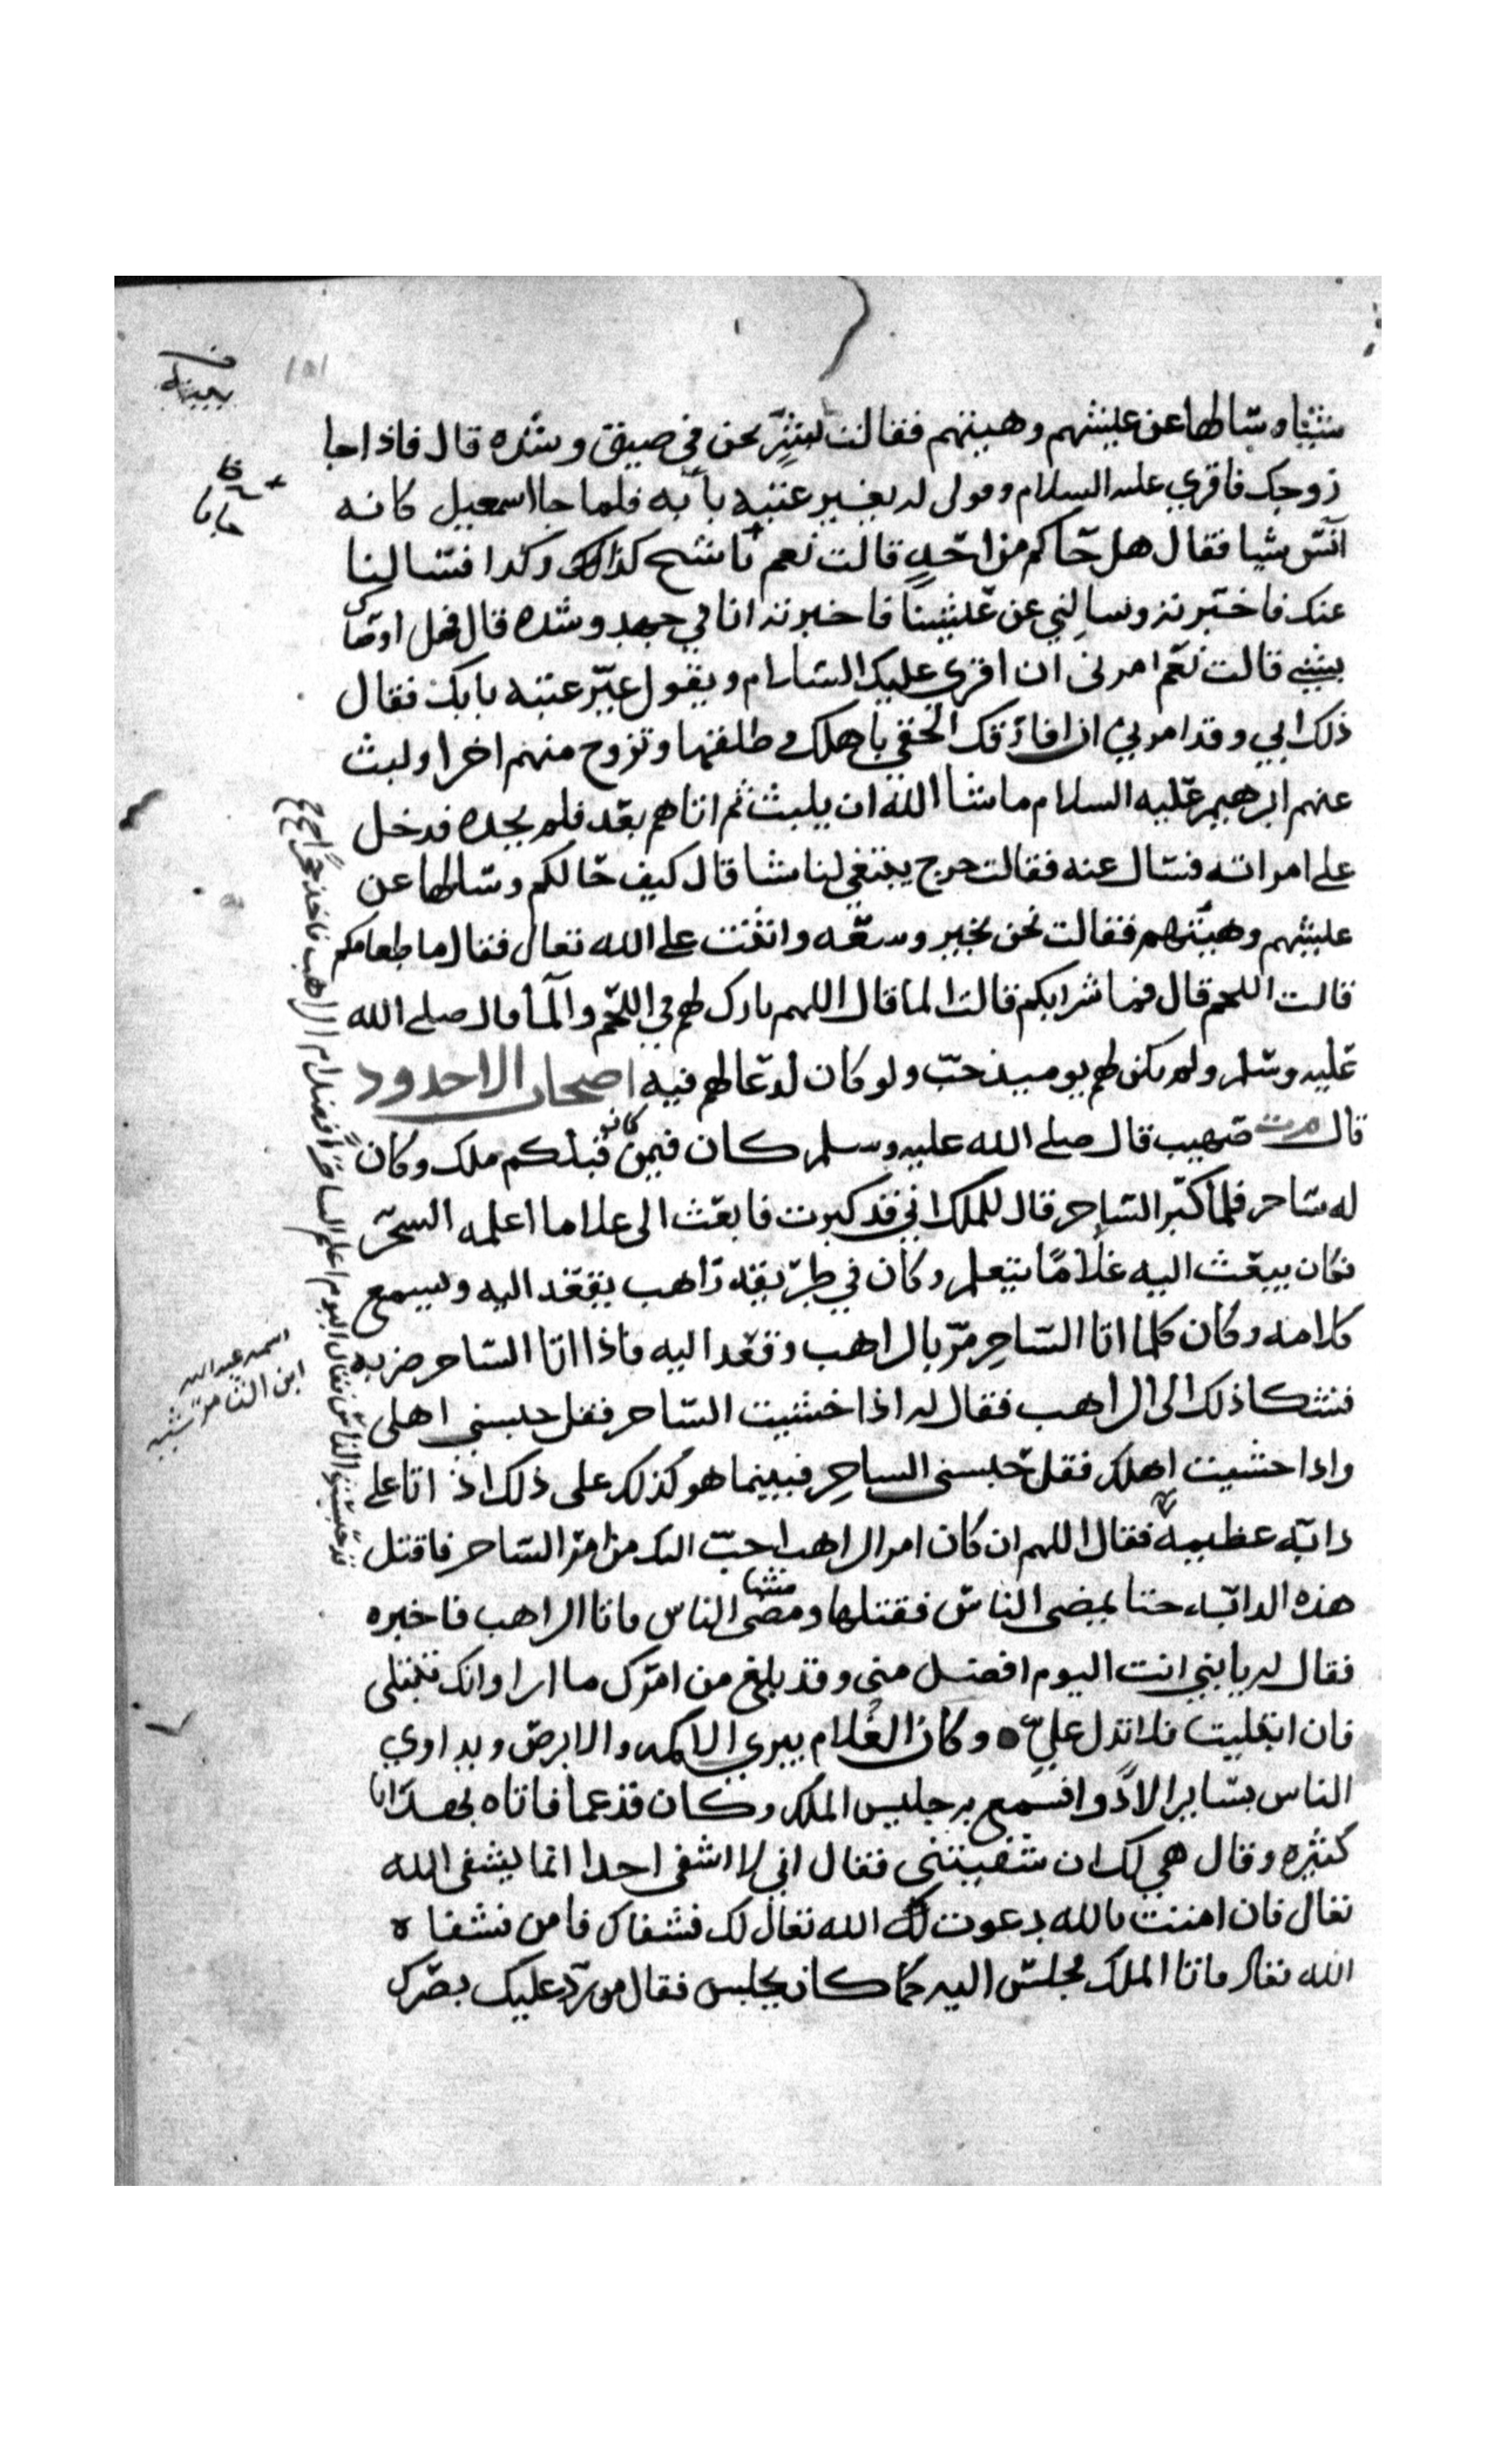 شيئا وسالها عن عيشهم وهيئتهم فقالت بشر نحن في ضيق وشده قال فاذا جا
زوجك فاقري عليه السلام وقولي له يغير عتبه بابه فلما جا اسمعيل كانه
آنس شيا فقال هل جاكم من احد قالت نعم شيخ كذا وكذا فسالنا
عنك فاخبرته وسالني عن عيشنا فاخبرته انا في جهد وشده قال فهل اوصاك
بشي قالت نعم امرني ان اقري عليك السلام ويقول غير عتبه بابك فقال
ذلك ابي وقد امرني ان افارقك الحقي باهلك وطلقها وتزوج منهم اخرا ولبث
عنهم ابرهيم عليه السلام ما شا الله ان يلبث ثم اتاهم بعد فلم يجده فدخل
على امراته فسال عنه فقالت خرج يبتغي لنا شيا قال كيف حالكم وسالها عن
عيشهم وهيئتهم فقالت نحن بخير وسعه واثنت على الله تعال فقال ما طعامكم
قالت اللحم قال فما شرابكم قالت الما قال اللهم بارك لهم في اللحم والما قال صلى الله
عليه وسلم ولم يكن لهم يوميذ حب ولو كان لدعا لهم فيه اصحاب الاخدود
قال صهيب قال صلى الله عليه وسلم كان فيمن كانو قبلكم ملك وكان
له ساحر فلما كبر الساحر قال للملك اني قد كبرت فابعث الى غلاما اعلمه السحر
فكان يبعث اليه غلاما يتعلم وكان في طريقه راهب يقعد اليه ويسمع
كلامه وكان كلما اتا الساحر مر بالراهب وقعد اليه فاذا اتا الساحر ضربه
فشكا ذلك الى الراهب فقال له اذا خشيت الساحر فقل حبسني اهلي
واذا خشيت اهلك فقل حبسني الساحر فبينما هو كذلك على ذلك اذ اتا على
دابه عظيمه فقال اللهم ان كان امر الراهب احب اليك من امر الساحر فاقتل
هذه الدابه حتا يمضى الناس فقتلها ومضى الناس فاتا الراهب فاخبره
فقال له يا بني انت اليوم افضل مني وقد بلغ من امرك ما ارا وانك تبتلى
فان ابتليت فلا تدل علي وكان الغلام يبري الاكمه والابرص ويداوي
الناس بساير الادوا فسمع به جليس الملك وكان قد عما فاتاه بهدايا
كثيره وقال هي لك ان شفيتني فقال اني لا اشفي احدا انما يشفي الله
تعال فان امنت بالله دعوت الله تعال لك فشفاك فامن فشفاه
الله تعال فاتا الملك فجلس اليه كما كان يجلس فقال من رد عليك بصرك
قد حبستهم الناس فقال اليوم اعلم الساحر افضل ام الراهب فاخذ حجرا
اسمه عبد الله
ابن الثامر